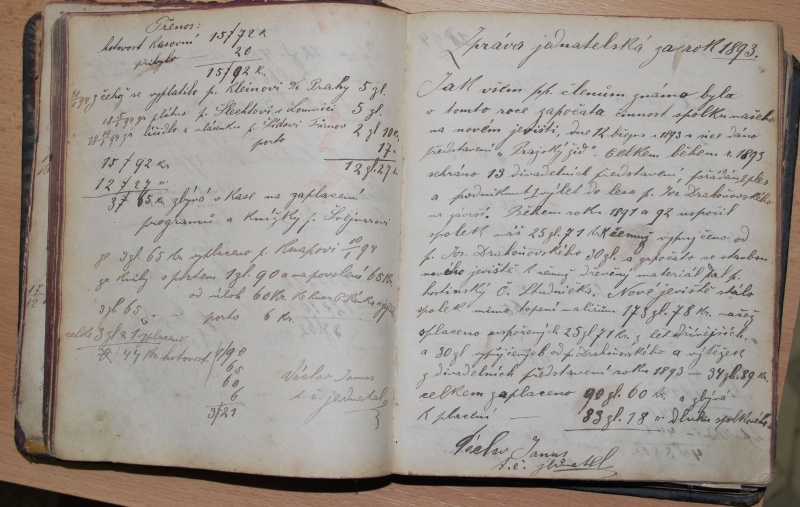 Přenos:
hotovost kasovní 15/72 K
přibylo 20
15/92 K.
čehož se vyplatilo p. Kleinovi do Prahy 5 zl.
za plátno p. Šlechtovi v Lomnici 5 zl.
2 zl 10 K
porto 17 "
12 zl. 27 K
15/92 K.
12/27 "
3/65 K. zbývá v Kase na zaplacení
programů a Knížky p.
ze 3 zl. 65 Kr. vyplaceno p. Knapovi
za knihy s portem 1 zl. 90 a na povolení 65 Kr.
od úloh 60 Kr.
3 zl. 65 porto 6 Kr.
celk. 3 zl. 21 vyplaceno
44 Kr. hotovost 1/90
65
60
6
3/21
Václav Janus
t. č. jednatel
Zpráva jednatelská za rok 1893.
Jak všem pp. členům známo byla
v tomto roce započata činnost spolku našeho
na novém jevišti, dne 12 března 1893 v níž dáno
představení „Pražský žid". Celkem během r. 1893
sehráno 13 divadelních představení, pořádán 2 ples
a podniknut výlet do lesa p. Jos. Drahoňovského
na závrší. Během roku 1891 a 92 uspořil
spolek náš 25 zl. 71 K k čemuž vypůjčeno od
p. Jos. Drahoňovského 30 zl. a započato se stavbou
nového jeviště k němuž dřevěný materiál dal p.
hostinský Č. Studnička. Nové jeviště stálo
spolek mimo topení na 173 zl. 78 Kr. načež
splaceno uspořených 25 zl 71 Kr. z let dřívějších
a 30 zl vypůjčených od p. Drahoňovského a výtěžek
z divadelních představení roku 1893 — 34 zl. 89 Kr.
celkem zaplaceno 90 zl. 60 Kr. a zbývá
k placení — 83 zl. 18 " dluhu spolkového
Václav Janus
t. č. jednatel